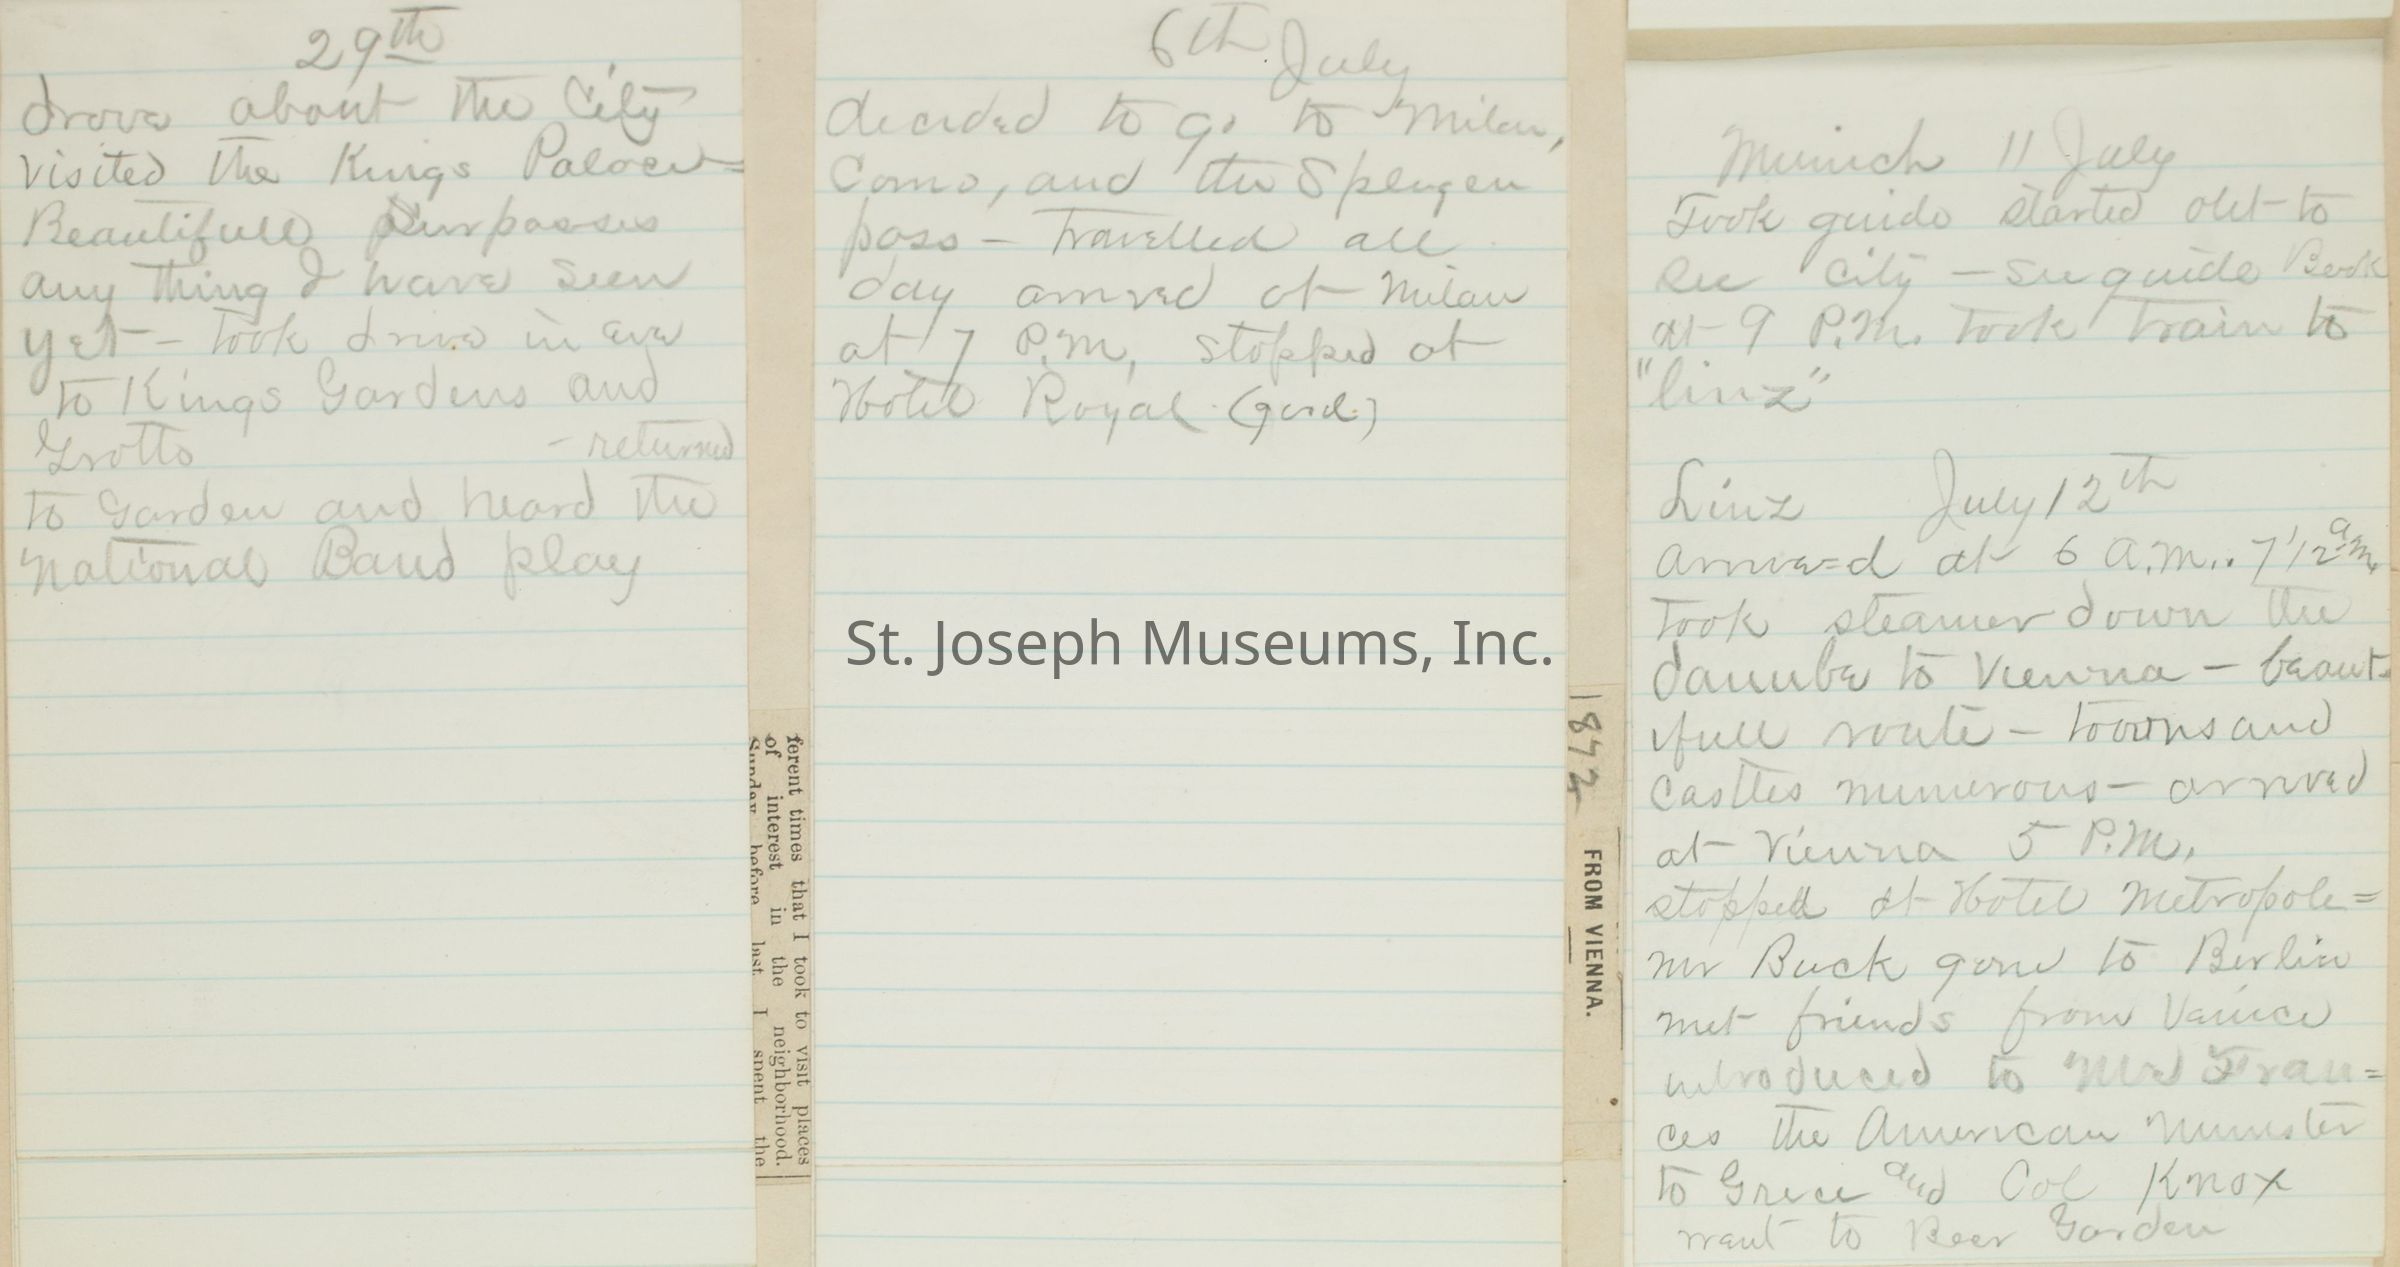 29th
drove about the City
visited the Kings Palace=
Beautifull Surpasses
any thing I have seen
yet - took drive in eve
to Kings Gardens and
Grotto - returned
to Garden and heard the
National Band play
ferent times that I took to visit places
of interest in the neighborhood.
Sunday before last I spent the
6th July
decided to go to Milan,
Como, and the Splugen
pass - travelled all
day arrived at Milan
at 7 P.M, stopped at
Hotel Royal (good)
St. Joseph Museums, Inc.
1872
FROM VIENNA.
Munich 11 July
Took guide started out to
see City - see guide Book
at 9 P.M. took train to
"linz"
Linz July 12th
arrive=d at 6 A.M.. 7 1/2 a.m.
took steamer down the
danube to Vienna - beaut-
ifull route - towns and
castles numerous - arrived
at Vienna 5 P.M.
stopped at Hotel Metropole=
Mr Buck gone to Berlin
met friends from Venice
introduced to Mr Fran=
ces the American Minister
to Greece and Col Knox
went to Beer Garden